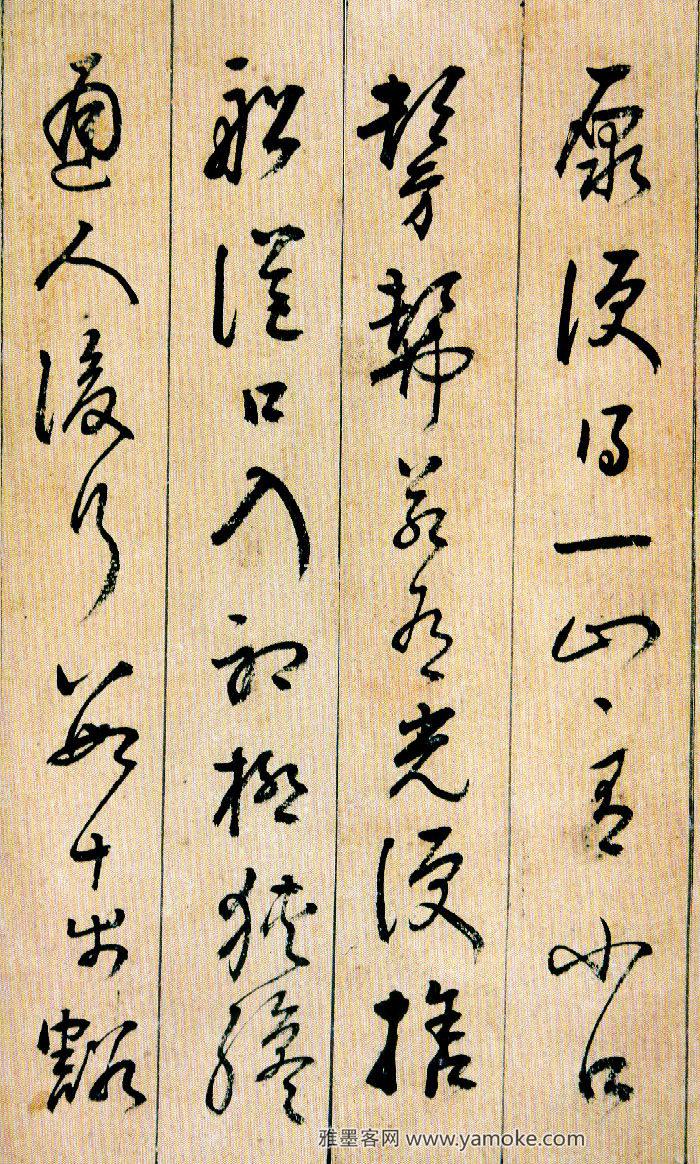 原便得一山々有小口
髣髴若有光便捨
船從口入初極狹纔
通人復行數十步豁
雅墨客网 www.yamoke.com